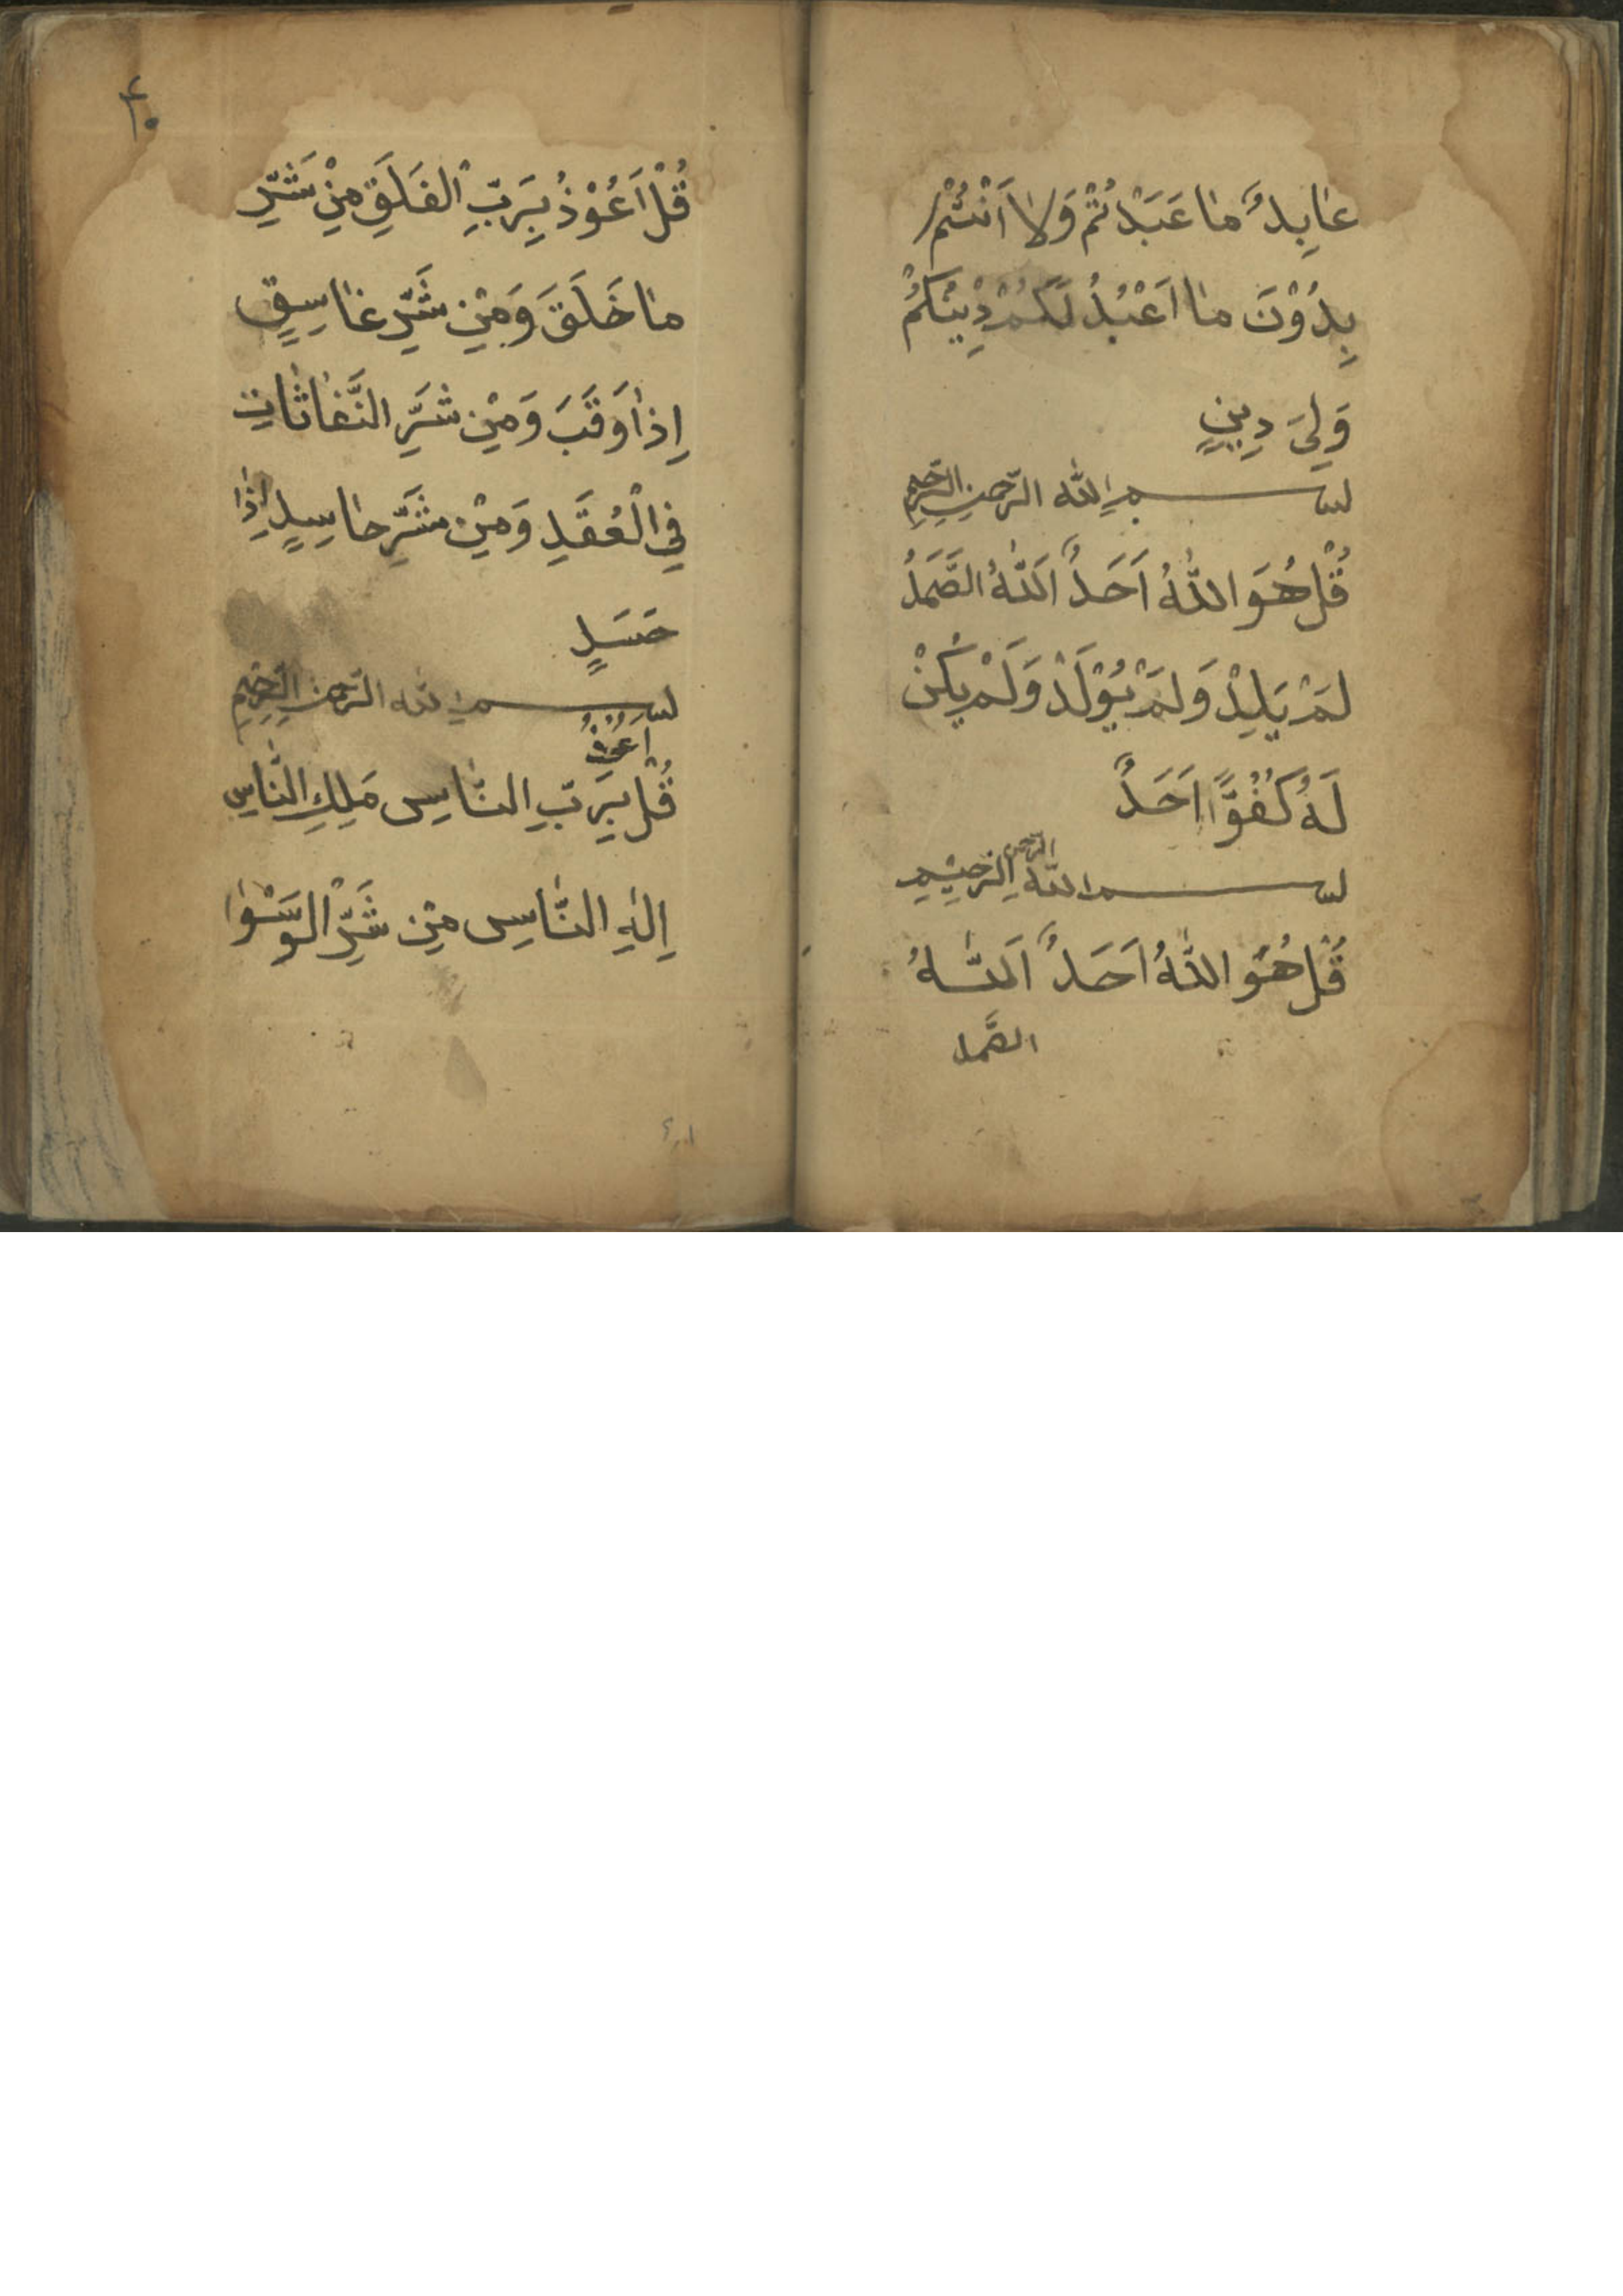 عَابِدٌ مَا عَبَدْتُمْ وَلَا اَنْتُمْ
بِدُوْنَ مَا اَعْبُدُ لَكُمْ دِيْنُكُمْ
وَلِيَ دِيْنٍ
بسم اللّٰه الرّحمنِ الرَّحِيمِ
قُلْ هُوَ اللّٰهُ اَحَدٌ اَللّٰهُ الصَّمَدُ
لَمْ يَلِدْ وَلَمْ يُوْلَدْ وَلَمْ يَكُنْ
لَهُ كُفُوًّا اَحَدٌ
بسم اللّٰه الرّحمن الرّحِيْمِ
قُلْ هُوَ اللّٰهُ اَحَدٌ اَللّٰهُ
الصَّمد
قُلْ اَعُوْذُ بِرَبِّ الْفَلَقِ مِنْ شَرِّ
مَا خَلَقَ وَمِنْ شَرِّ غَاسِقٍ
اِذَا وَقَبَ وَمِنْ شَرِّ النَّفَاثَاتِ
فِي الْعُقَدِ وَمِنْ شَرِّ حَاسِدٍ اِذَا
حَسَدٍ
بسم اللّٰه الرّحمن الرَّحِيمِ
اَعُوْذُ
قُلْ بِرَبِّ النَّاسِ مَلِكِ النَّاسِ
اِلٰهِ النَّاسِ مِنْ شَرِّ الْوَسْوَا